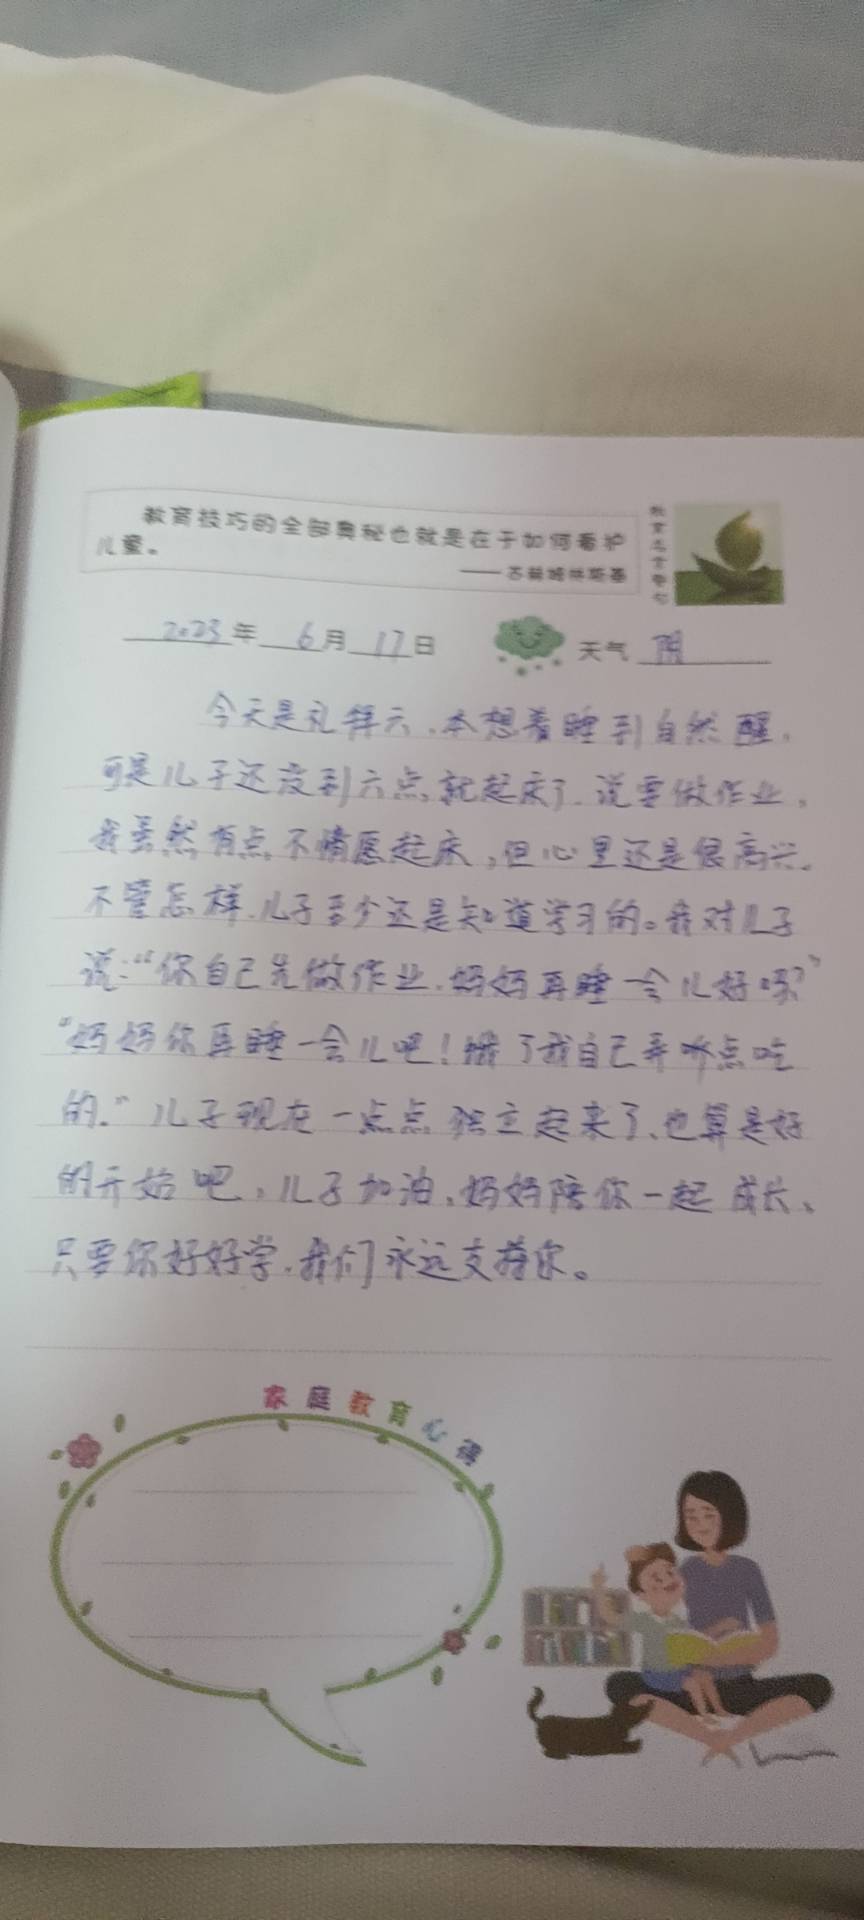 教育技巧的全部奥秘也就是在于如何看护
儿童。
——苏霍姆林斯基
2023年 6月 17日 天气 阴
今天是礼拜六,本想着睡到自然醒,
可是儿子还没到六点,就起床了.说要做作业,
我虽然有点不情愿起床,但心里还是很高兴.
不管怎样.儿子至少还是知道学习的。我对儿子
说:“你自己先做作业.妈妈再睡一会儿好吗?”
“妈妈你再睡一会儿吧!饿了我自己弄点吃
的.”儿子现在一点点独立起来了,也算是好
的开始吧,儿子加油,妈妈陪你一起成长、
只要你好好学.我们永远支持你。
家庭教育心得